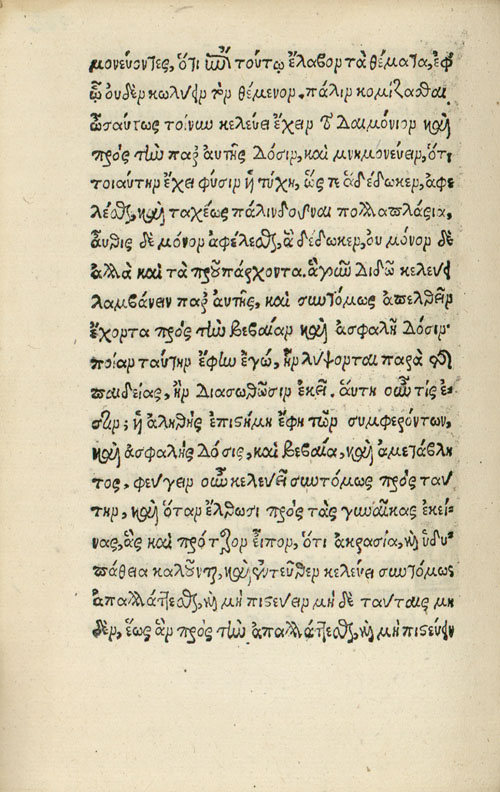 μονεύοντες, ὅτι ἐπὶ τούτῳ ἔλαβον τὰ θέματα, ἐφ
ᾧ οὐδὲν κωλύειν τὸν θέμενον πάλιν κομίζασθαι.
ὡσαύτως τοίνυν κελεύει ἔχειν τὸ Δαιμόνιον καὶ
πρὸς τὴν παρ αὐτῆς Δόσιν, καὶ μνημονεύειν, ὅτι
τοιαύτην ἔχει φύσιν ἡ τύχη, ὥς τε ἃ δέδωκεν, ἀφε
λέσθαι, καὶ ταχέως πάλιν δοῦναι πολλαπλάσια,
αὖθις δὲ μόνον ἀφέλεσθαι, ἃ δέδωκεν, οὐ μόνον δὲ
ἀλλὰ καὶ τὰ προϋπάρχοντα. ἃ γοῦν Διδῶ κελεύει
λαμβάνειν παρ αὐτῆς, καὶ συντόμως ἀπελθεῖν
ἔχοντα πρὸς τὴν βεβαίαν καὶ ἀσφαλῆ Δόσιν·
ποίαν ταύτην ἔφην ἐγώ, ἣν λήψονται παρὰ τῆς
παιδείας, ἢν Διασωθῶσιν ἐκεῖ. αὕτη οὖν τίς ἐ-
στιν; ἡ ἀληθὴς ἐπιστήμη ἔφη τῶν συμφερόντων,
καὶ ἀσφαλὴς Δόσις, καὶ βεβαία, καὶ ἀμετάβλη
τος, φεύγειν οὖν κελεύει συντόμως πρὸς ταύ
την, καὶ ὅταν ἔλθωσι πρὸς τὰς γυναῖκας ἐκεί-
νας, ἃς καὶ πρότερον εἶπον, ὅτι ἀκρασία, καὶ ἡδυ-
πάθεια καλοῦνται, καὶ ἐντεῦθεν κελεύει συντόμως
ἀπαλλάττεσθαι, καὶ μὴ πιστεύειν μὴ δὲ ταύταις μη
δὲν, ἕως ἂν πρὸς τὴν ἀπαλλάττεσθαι, καὶ μὴ πιστεύειν